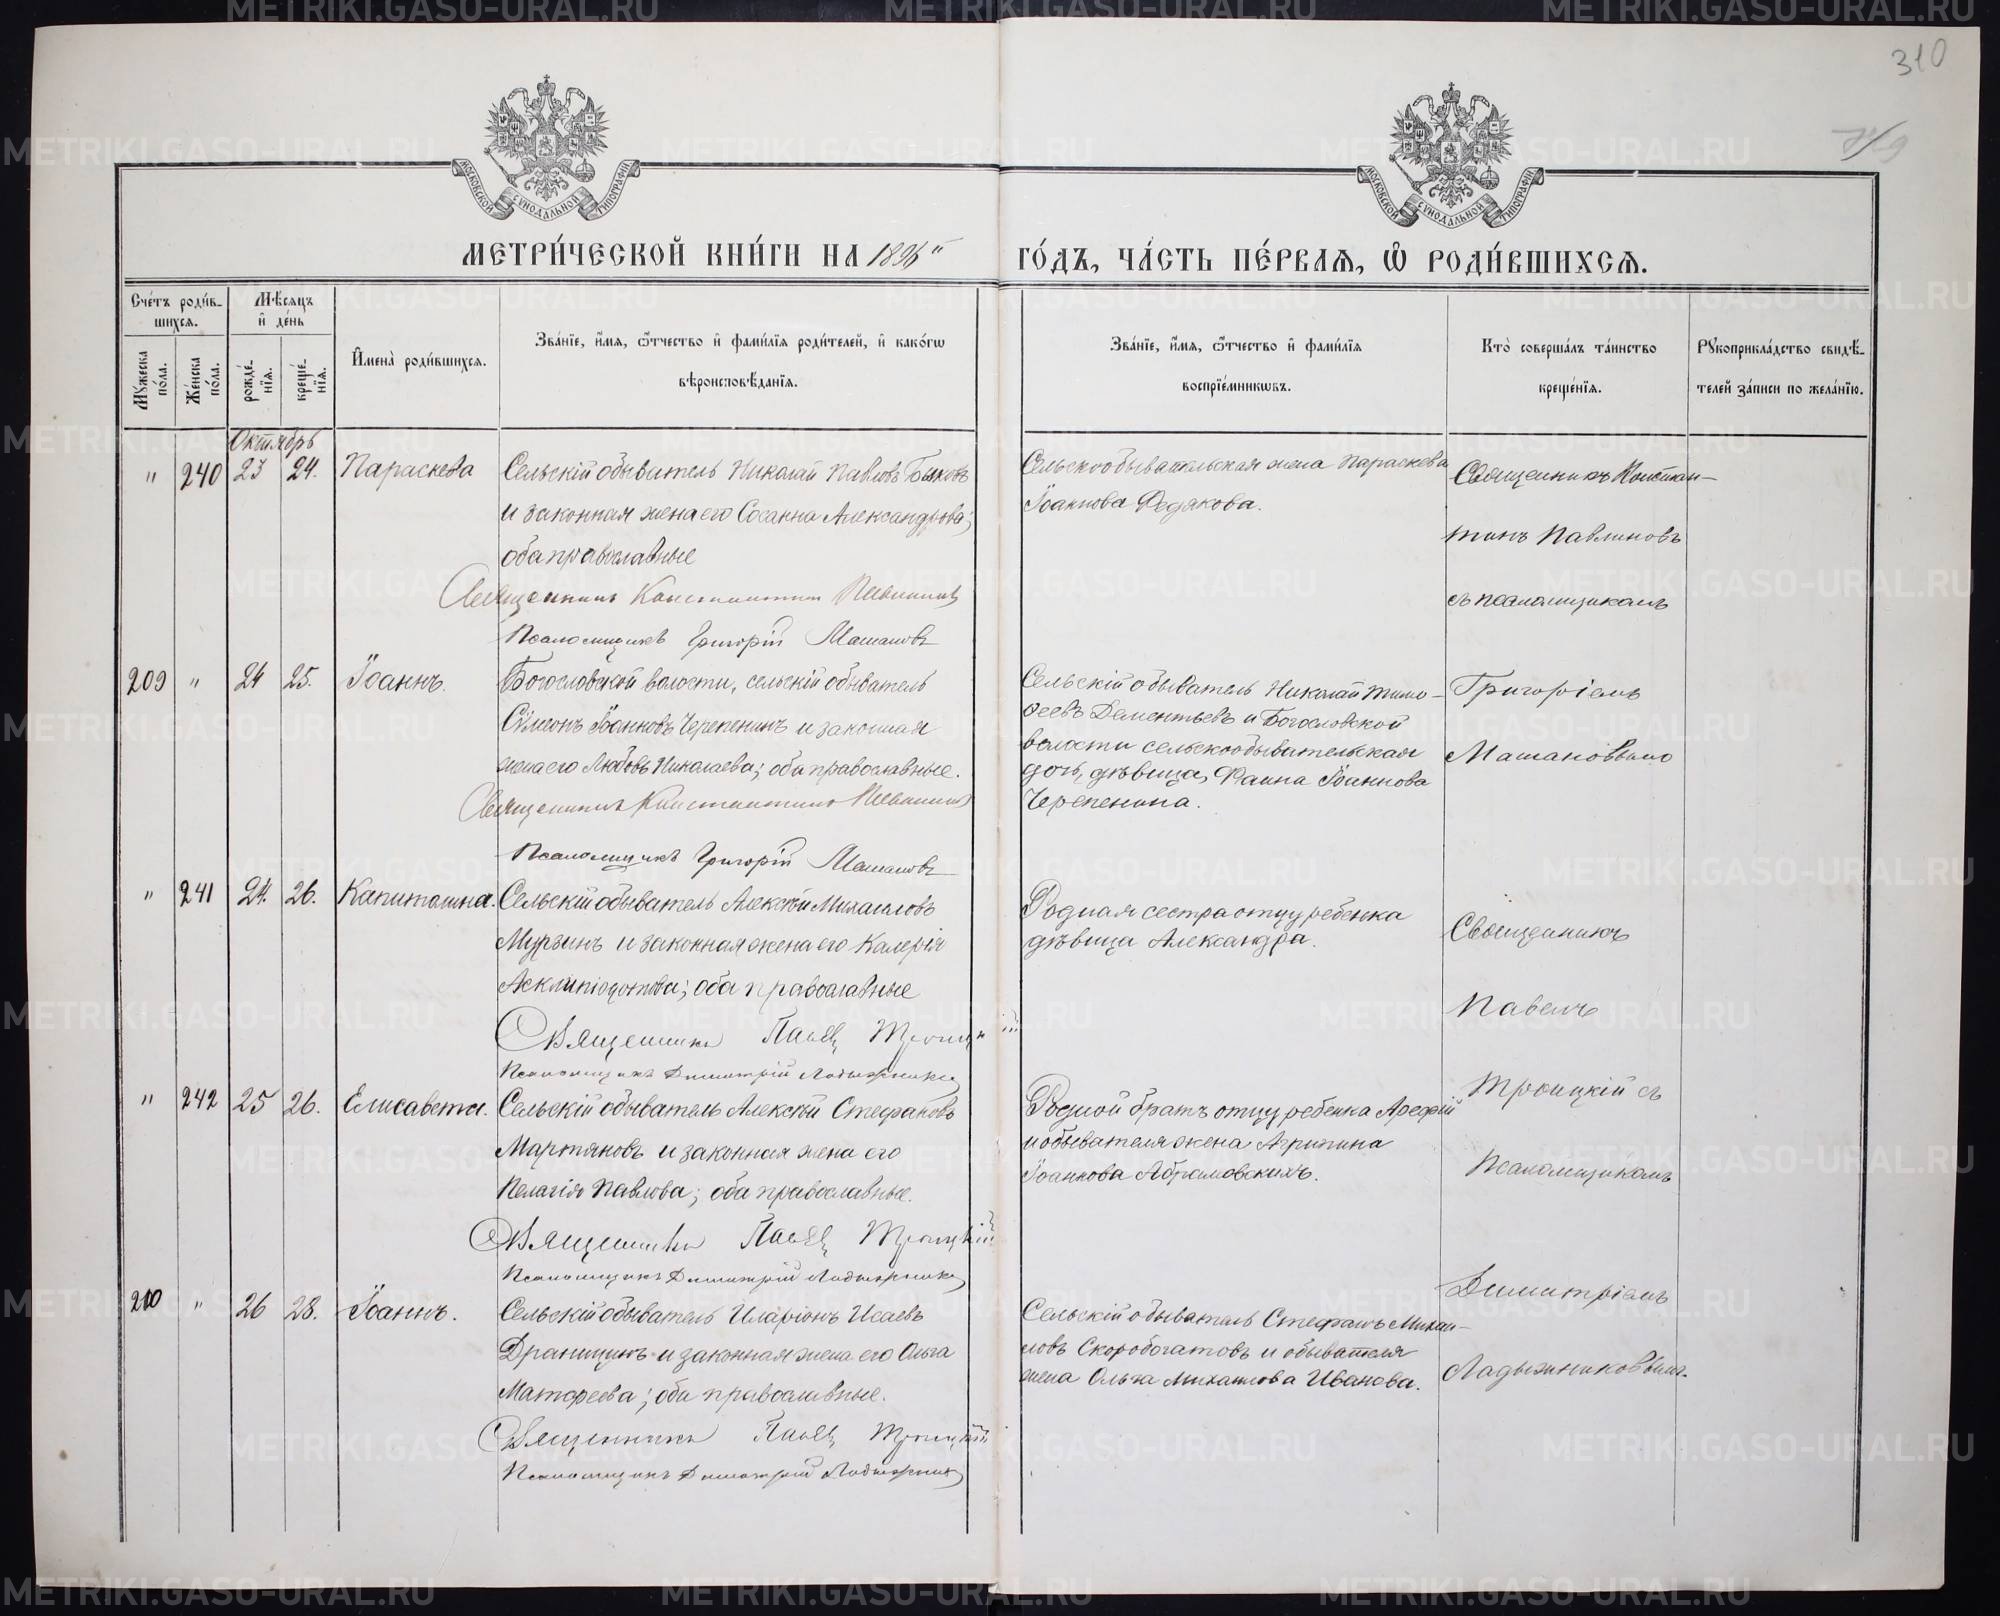 310
МОСКОВСКОЙ СѴНОДАЛЬНОЙ ТИПОГРАФІИ
МОСКОВСКОЙ СѴНОДАЛЬНОЙ ТИПОГРАФІИ
МЕТРИ́ЧЕСКОЙ КНИ́ГИ НА 1896 ГО́ДЪ, ЧА́СТЬ ПЕ́РВАѦ, Ѡ҆ РОДИ́ВШИХСѦ.
Сче́тъ роди́в-
шихсѧ.
Мꙋ́жеска по́ла.
Же́нска по́ла.
Мѣ́сѧцъ
и҆ де́нь
рожде́-
нїѧ.
креще́-
нїѧ.
И҆мена̀ роди́вшихсѧ.
Зва́нїе, и҆́мѧ, ѻ҆́тчество и҆ фами́лїѧ роди́телей, и҆ како́гѡ
вѣроисповѣ́данїѧ.
Зва́нїе, и҆́мѧ, ѻ҆́тчество и҆ фами́лїѧ
воспрїе́мникѡвъ.
Кто̀ соверша́лъ та́инство
креще́нїѧ.
Рꙋкоприкла́дство свидѣ́-
телей за́писи по жела́нїю.
Октябрь
" 240 23 24. Параскева
Сельскій обыватель Николай Павловъ Быковъ
и законная жена его Сосанна Александрова;
оба православные
Священникъ Константинъ Павлиновъ
Псаломщикъ Григорій Машановъ
Сельскообывательская жена Параскева
Іоаннова Федякова.
Священникъ Констан-
тинъ Павлиновъ
съ псаломщикомъ
Григоріемъ
Машановымъ
209 " 24 25. Іоаннъ.
Богословской волости, сельскій обыватель
Сѵмеонъ Іоанновъ Черепенинъ и законная
жена его Любовь Николаева; оба православные.
Священникъ Константинъ Павлиновъ
Псаломщикъ Григорій Машановъ
Сельскій обыватель Николай Тимо-
ѳеевъ Дементьевъ и Богословской
волости сельскообывательская
дочь, дѣвица, Фаина Іоаннова
Черепенина.
" 241 24. 26. Капитолина.
Сельскій обыватель Алексѣй Михаиловъ
Мурзинъ и законная жена его Калерія
Асклипіодотова; оба православные
Священникъ Павелъ Троицкій
Псаломщикъ Димитрій Ладыжниковъ
Родная сестра отцу ребенка
дѣвица Александра.
Священникъ
Павелъ
Троицкій съ
псаломщикомъ
Димитріемъ
Ладыжниковымъ.
" 242 25 26. Елисавета.
Сельскій обыватель Алексѣй Стефановъ
Мартяновъ и законная жена его
Пелагія Павлова; оба православные.
Священникъ Павелъ Троицкій
Псаломщикъ Димитрій Ладыжниковъ
Родной братъ отцу ребенка Арефій
и обывателя жена Агрипина
Іоаннова Абрамовскихъ.
210 " 26 28. Іоаннъ.
Сельскій обыватель Иларіонъ Исаевъ
и законная жена его Ольга
Матфеева; оба православные.
Священникъ Павелъ Троицкій
Псаломщикъ Димитрій Ладыжниковъ
Сельскій обыватель Стефанъ Михаи-
ловъ Скоробогатовъ и обывателя
жена Ольга Михаилова Иванова.
METRIKI.GASO-URAL.RU